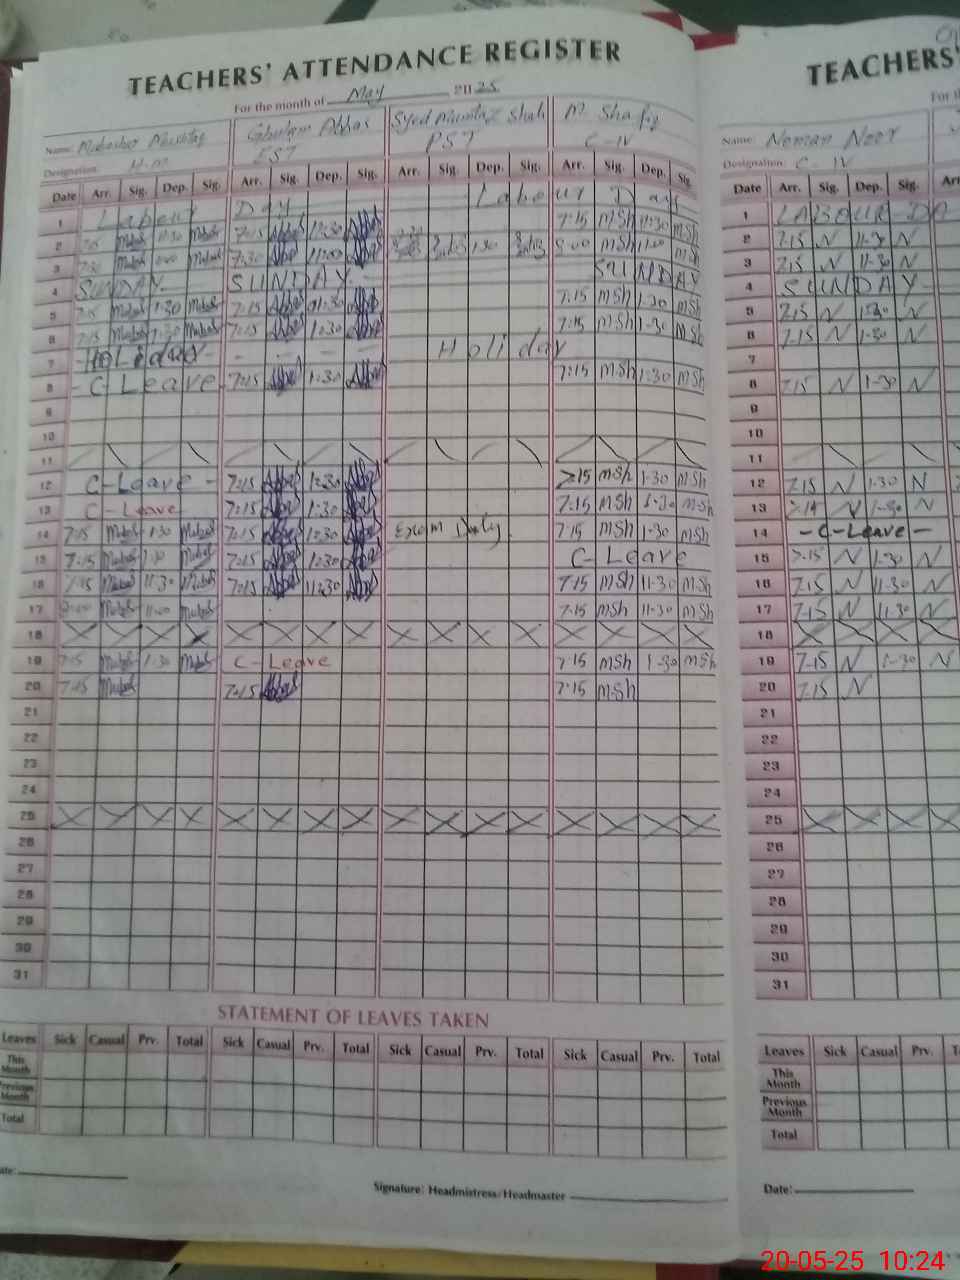 TEACHERS' ATTENDANCE REGISTER
For the month of May 2025
Name: Mubashar Mushtaq Ghulam Abbas Syed Mumtaz Shah M. Shafiq
Designation: H-M EST PST C-IV
Date Arr. Sig. Dep. Sig. Arr. Sig. Dep. Sig. Arr. Sig. Dep. Sig. Arr. Sig. Dep. Sig.
1 Labour Day Labour Day
2 7:15 11:30 7:15 11:30 7:15 MSh 11:30 MSh
3 7:30 11:00 7:30 11:00 1:30 8:00 MSh 11:00 MSh
4 SUNDAY SUNDAY SUNDAY
5 7:15 1:30 7:15 1:30 7:15 MSh 1:30 MSh
6 7:15 1:30 7:15 1:30 7:15 MSh 1-30 MSh
7 HOLIDAY - - - - Holiday
8 - C Leave 7:15 1:30 7:15 MSh 1:30 MSh
9
10
11
12 C-Leave - 7:15 1:30 7:15 MSh 1-30 MSh
13 C-Leave 7:15 1:30 7:15 MSh 1-30 MSh
14 7:15 1:30 7:15 1:30 Exam Duty 7:15 MSh 1-30 MSh
15 7:15 1:30 7:15 1:30 C-Leave
16 7:15 11:30 7:15 11:30 7:15 MSh 11-30 MSh
17 11:00 7:15 MSh 11-30 MSh
18
19 7:15 1:30 C-Leave 7:15 MSh 1-30 MSh
20 7:15 7:15 7:15 MSh
21
22
23
24
25
26
27
28
29
30
31
STATEMENT OF LEAVES TAKEN
Leaves Sick Casual Prv. Total Sick Casual Prv. Total Sick Casual Prv. Total Sick Casual Prv. Total
This Month
Previous Month
Total
ate:
Signature: Headmistress/Headmaster
TEACHERS'
For th
Name: Noman Noor
Designation: C-IV
Date Arr. Sig. Dep. Sig. Arr
1 LABOUR DA
2 7.15 N 11-30 N
3 7.15 N 11-30 N
4 SUNDAY
5 7.15 N 1-30 N
6 7-15 N 1-30 N
7
8 7.15 N 1-30 N
9
10
11
12 7.15 N 1-30 N
13 N 1-30 N
14 - C-Leave -
15 7-15 N 1-30 N
16 7.15 N 11-30 N
17 7-15 N 11-30 N
18
19 7-15 N 1-30 N
20 7.15 N
21
22
23
24
25
26
27
28
29
30
31
Leaves Sick Casual Prv. T
This Month
Previous Month
Total
Date:
20-05-25 10:24